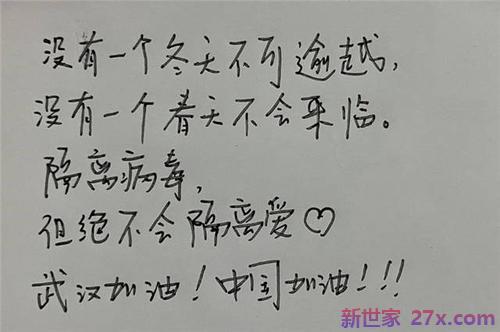 没有一个冬天不可逾越,
没有一个春天不会来临。
隔离病毒,
但绝不会隔离爱♡
武汉加油!中国加油!!!
新世家 27x.com